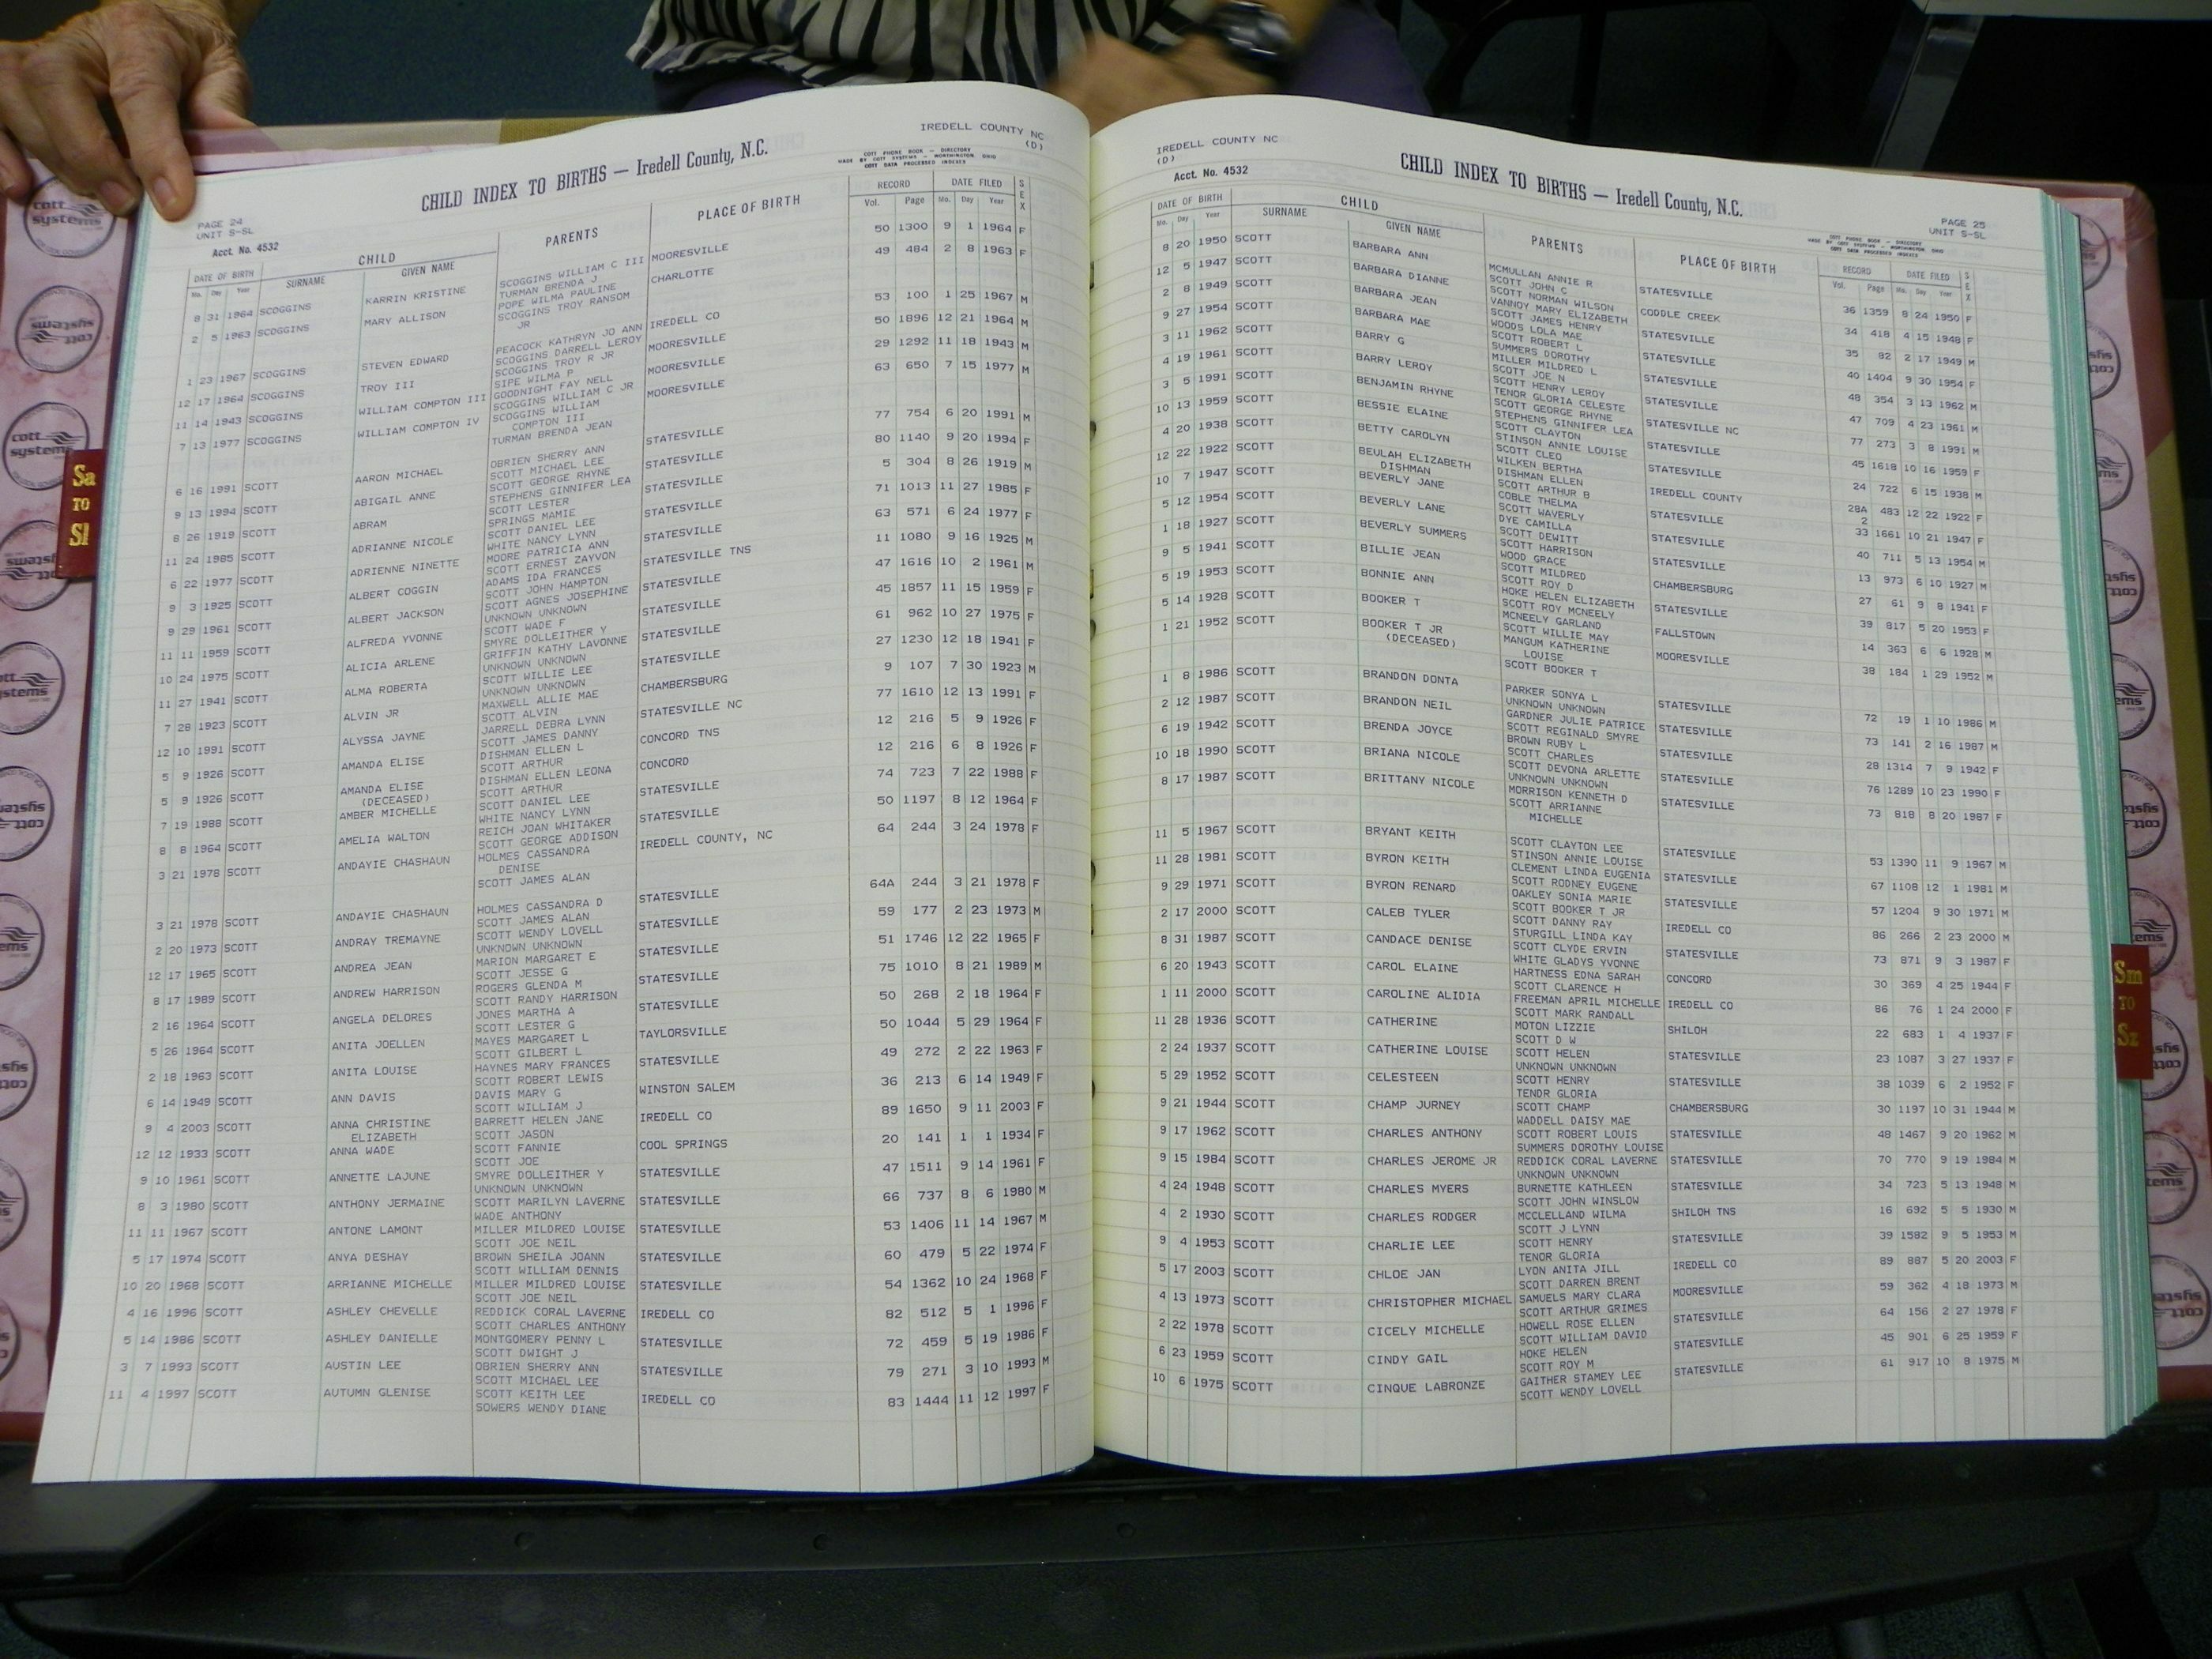 IREDELL COUNTY NC
(D)
CHILD INDEX TO BIRTHS — Iredell County, N.C.
COTT PHONE BOOK — DIRECTORY
MADE BY COTT SYSTEMS — WORTHINGTON OHIO
COTT DATA PROCESSED INDEXES
PAGE 24
UNIT S-SL
Acct. No. 4532
DATE OF BIRTH CHILD PARENTS PLACE OF BIRTH RECORD DATE FILED SEX
Mo. Day Year SURNAME GIVEN NAME Vol. Page Mo. Day Year
8 31 1964 SCOGGINS KARRIN KRISTINE SCOGGINS WILLIAM C III MOORESVILLE 50 1300 9 1 1964 F
TURMAN BRENDA J
2 5 1963 SCOGGINS MARY ALLISON POPE WILMA PAULINE CHARLOTTE 49 484 2 8 1963 F
SCOGGINS TROY RANSOM
JR
1 23 1967 SCOGGINS STEVEN EDWARD PEACOCK KATHRYN JO ANN IREDELL CO 53 100 1 25 1967 M
SCOGGINS DARRELL LEROY
12 17 1964 SCOGGINS TROY III SCOGGINS TROY R JR MOORESVILLE 50 1896 12 21 1964 M
SIPE WILMA P
11 14 1943 SCOGGINS WILLIAM COMPTON III GOODNIGHT FAY NELL MOORESVILLE 29 1292 11 18 1943 M
SCOGGINS WILLIAM C JR
7 13 1977 SCOGGINS WILLIAM COMPTON IV SCOGGINS WILLIAM MOORESVILLE 63 650 7 15 1977 M
COMPTON III
TURMAN BRENDA JEAN
6 16 1991 SCOTT AARON MICHAEL OBRIEN SHERRY ANN STATESVILLE 77 754 6 20 1991 M
SCOTT MICHAEL LEE
9 13 1994 SCOTT ABIGAIL ANNE SCOTT GEORGE RHYNE STATESVILLE 80 1140 9 20 1994 F
STEPHENS GINNIFER LEA
8 26 1919 SCOTT ABRAM SCOTT LESTER STATESVILLE 5 304 8 26 1919 M
SPRINGS MAMIE
11 24 1985 SCOTT ADRIANNE NICOLE SCOTT DANIEL LEE STATESVILLE 71 1013 11 27 1985 F
WHITE NANCY LYNN
6 22 1977 SCOTT ADRIENNE NINETTE MOORE PATRICIA ANN STATESVILLE 63 571 6 24 1977 F
SCOTT ERNEST ZAYVON
9 3 1925 SCOTT ALBERT COGGIN ADAMS IDA FRANCES STATESVILLE TNS 11 1080 9 16 1925 M
SCOTT JOHN HAMPTON
9 29 1961 SCOTT ALBERT JACKSON SCOTT AGNES JOSEPHINE STATESVILLE 47 1616 10 2 1961 M
UNKNOWN UNKNOWN
11 11 1959 SCOTT ALFREDA YVONNE SCOTT WADE F STATESVILLE 45 1857 11 15 1959 F
SMYRE DOLLEITHER Y
10 24 1975 SCOTT ALICIA ARLENE GRIFFIN KATHY LAVONNE STATESVILLE 61 962 10 27 1975 F
UNKNOWN UNKNOWN
11 27 1941 SCOTT ALMA ROBERTA SCOTT WILLIE LEE STATESVILLE 27 1230 12 18 1941 F
UNKNOWN UNKNOWN
7 28 1923 SCOTT ALVIN JR MAXWELL ALLIE MAE CHAMBERSBURG 9 107 7 30 1923 M
SCOTT ALVIN
12 10 1991 SCOTT ALYSSA JAYNE JARRELL DEBRA LYNN STATESVILLE NC 77 1610 12 13 1991 F
SCOTT JAMES DANNY
5 9 1926 SCOTT AMANDA ELISE DISHMAN ELLEN L CONCORD TNS 12 216 5 9 1926 F
SCOTT ARTHUR
5 9 1926 SCOTT AMANDA ELISE DISHMAN ELLEN LEONA CONCORD 12 216 6 8 1926 F
(DECEASED) SCOTT ARTHUR
7 19 1988 SCOTT AMBER MICHELLE SCOTT DANIEL LEE STATESVILLE 74 723 7 22 1988 F
WHITE NANCY LYNN
8 8 1964 SCOTT AMELIA WALTON REICH JOAN WHITAKER STATESVILLE 50 1197 8 12 1964 F
SCOTT GEORGE ADDISON
3 21 1978 SCOTT ANDAYIE CHASHAUN HOLMES CASSANDRA IREDELL COUNTY, NC 64 244 3 24 1978 F
DENISE
SCOTT JAMES ALAN
3 21 1978 SCOTT ANDAYIE CHASHAUN HOLMES CASSANDRA D STATESVILLE 64A 244 3 21 1978 F
SCOTT JAMES ALAN
2 20 1973 SCOTT ANDRAY TREMAYNE SCOTT WENDY LOVELL STATESVILLE 59 177 2 23 1973 M
UNKNOWN UNKNOWN
12 17 1965 SCOTT ANDREA JEAN MARION MARGARET E STATESVILLE 51 1746 12 22 1965 F
SCOTT JESSE G
8 17 1989 SCOTT ANDREW HARRISON ROGERS GLENDA M STATESVILLE 75 1010 8 21 1989 M
SCOTT RANDY HARRISON
2 16 1964 SCOTT ANGELA DELORES JONES MARTHA A STATESVILLE 50 268 2 18 1964 F
SCOTT LESTER G
5 26 1964 SCOTT ANITA JOELLEN MAYES MARGARET L TAYLORSVILLE 50 1044 5 29 1964 F
SCOTT GILBERT L
2 18 1963 SCOTT ANITA LOUISE HAYNES MARY FRANCES STATESVILLE 49 272 2 22 1963 F
SCOTT ROBERT LEWIS
6 14 1949 SCOTT ANN DAVIS DAVIS MARY G WINSTON SALEM 36 213 6 14 1949 F
SCOTT WILLIAM J
9 4 2003 SCOTT ANNA CHRISTINE BARRETT HELEN JANE IREDELL CO 89 1650 9 11 2003 F
ELIZABETH SCOTT JASON
12 12 1933 SCOTT ANNA WADE SCOTT FANNIE COOL SPRINGS 20 141 1 1 1934 F
SCOTT JOE
9 10 1961 SCOTT ANNETTE LAJUNE SMYRE DOLLEITHER Y STATESVILLE 47 1511 9 14 1961 F
UNKNOWN UNKNOWN
8 3 1980 SCOTT ANTHONY JERMAINE SCOTT MARILYN LAVERNE STATESVILLE 66 737 8 6 1980 M
WADE ANTHONY
11 11 1967 SCOTT ANTONE LAMONT MILLER MILDRED LOUISE STATESVILLE 53 1406 11 14 1967 M
SCOTT JOE NEIL
5 17 1974 SCOTT ANYA DESHAY BROWN SHEILA JOANN STATESVILLE 60 479 5 22 1974 F
SCOTT WILLIAM DENNIS
10 20 1968 SCOTT ARRIANNE MICHELLE MILLER MILDRED LOUISE STATESVILLE 54 1362 10 24 1968 F
SCOTT JOE NEIL
4 16 1996 SCOTT ASHLEY CHEVELLE REDDICK CORAL LAVERNE IREDELL CO 82 512 5 1 1996 F
SCOTT CHARLES ANTHONY
5 14 1986 SCOTT ASHLEY DANIELLE MONTGOMERY PENNY L STATESVILLE 72 459 5 19 1986 F
SCOTT DWIGHT J
3 7 1993 SCOTT AUSTIN LEE OBRIEN SHERRY ANN STATESVILLE 79 271 3 10 1993 M
SCOTT MICHAEL LEE
11 4 1997 SCOTT AUTUMN GLENISE SCOTT KEITH LEE IREDELL CO 83 1444 11 12 1997 F
SOWERS WENDY DIANE
IREDELL COUNTY NC
(D)
Acct. No. 4532
CHILD INDEX TO BIRTHS — Iredell County, N.C.
PAGE 25
UNIT S-SL
COTT PHONE BOOK — DIRECTORY
MADE BY COTT SYSTEMS — WORTHINGTON OHIO
COTT DATA PROCESSED INDEXES
DATE OF BIRTH CHILD PARENTS PLACE OF BIRTH RECORD DATE FILED SEX
Mo. Day Year SURNAME GIVEN NAME Vol. Page Mo. Day Year
8 20 1950 SCOTT BARBARA ANN MCMULLAN ANNIE R STATESVILLE 36 1359 8 24 1950 F
SCOTT JOHN C
12 5 1947 SCOTT BARBARA DIANNE SCOTT NORMAN WILSON CODDLE CREEK 34 418 4 15 1948 F
VANNOY MARY ELIZABETH
2 8 1949 SCOTT BARBARA JEAN SCOTT JAMES HENRY STATESVILLE 35 82 2 17 1949 M
WOODS LOLA MAE
9 27 1954 SCOTT BARBARA MAE SCOTT ROBERT L STATESVILLE 40 1404 9 30 1954 F
SUMMERS DOROTHY
3 11 1962 SCOTT BARRY G MILLER MILDRED L STATESVILLE 48 354 3 13 1962 M
SCOTT JOE N
4 19 1961 SCOTT BARRY LEROY SCOTT HENRY LEROY STATESVILLE 47 709 4 23 1961 M
TENOR GLORIA CELESTE
3 5 1991 SCOTT BENJAMIN RHYNE SCOTT GEORGE RHYNE STATESVILLE NC 77 273 3 8 1991 M
STEPHENS GINNIFER LEA
10 13 1959 SCOTT BESSIE ELAINE SCOTT CLAYTON STATESVILLE 45 1618 10 16 1959 F
STINSON ANNIE LOUISE
4 20 1938 SCOTT BETTY CAROLYN SCOTT CLEO STATESVILLE 24 722 6 15 1938 M
WILKEN BERTHA
12 22 1922 SCOTT BEULAH ELIZABETH DISHMAN ELLEN IREDELL COUNTY 28A 483 12 22 1922 F
DISHMAN SCOTT ARTHUR B 2
10 7 1947 SCOTT BEVERLY JANE COBLE THELMA STATESVILLE 33 1661 10 21 1947 F
SCOTT WAVERLY
5 12 1954 SCOTT BEVERLY LANE DYE CAMILLA STATESVILLE 40 711 5 13 1954 M
SCOTT DEWITT
1 18 1927 SCOTT BEVERLY SUMMERS SCOTT HARRISON STATESVILLE 13 973 6 10 1927 M
WOOD GRACE
9 5 1941 SCOTT BILLIE JEAN SCOTT MILDRED CHAMBERSBURG 27 61 9 8 1941 F
SCOTT ROY D
5 19 1953 SCOTT BONNIE ANN HOKE HELEN ELIZABETH STATESVILLE 39 817 5 20 1953 F
SCOTT ROY MCNEELY
5 14 1928 SCOTT BOOKER T MCNEELY GARLAND FALLSTOWN 14 363 6 6 1928 M
SCOTT WILLIE MAY
1 21 1952 SCOTT BOOKER T JR MANGUM KATHERINE MOORESVILLE 38 184 1 29 1952 M
(DECEASED) LOUISE
SCOTT BOOKER T
1 8 1986 SCOTT BRANDON DONTA PARKER SONYA L STATESVILLE 72 19 1 10 1986 M
UNKNOWN UNKNOWN
2 12 1987 SCOTT BRANDON NEIL GARDNER JULIE PATRICE STATESVILLE 73 141 2 16 1987 M
SCOTT REGINALD SMYRE
6 19 1942 SCOTT BRENDA JOYCE BROWN RUBY L STATESVILLE 28 1314 7 9 1942 F
SCOTT CHARLES
10 18 1990 SCOTT BRIANA NICOLE SCOTT DEVONA ARLETTE STATESVILLE 76 1289 10 23 1990 F
UNKNOWN UNKNOWN
8 17 1987 SCOTT BRITTANY NICOLE MORRISON KENNETH D STATESVILLE 73 818 8 20 1987 F
SCOTT ARRIANNE
MICHELLE
11 5 1967 SCOTT BRYANT KEITH SCOTT CLAYTON LEE STATESVILLE 53 1390 11 9 1967 M
STINSON ANNIE LOUISE
11 28 1981 SCOTT BYRON KEITH CLEMENT LINDA EUGENIA STATESVILLE 67 1108 12 1 1981 M
SCOTT RODNEY EUGENE
9 29 1971 SCOTT BYRON RENARD OAKLEY SONIA MARIE STATESVILLE 57 1204 9 30 1971 M
SCOTT BOOKER T JR
2 17 2000 SCOTT CALEB TYLER SCOTT DANNY RAY IREDELL CO 86 266 2 23 2000 M
STURGILL LINDA KAY
8 31 1987 SCOTT CANDACE DENISE SCOTT CLYDE ERVIN STATESVILLE 73 871 9 3 1987 F
WHITE GLADYS YVONNE
6 20 1943 SCOTT CAROL ELAINE HARTNESS EDNA SARAH CONCORD 30 369 4 25 1944 F
SCOTT CLARENCE H
1 11 2000 SCOTT CAROLINE ALIDIA FREEMAN APRIL MICHELLE IREDELL CO 86 76 1 24 2000 F
SCOTT MARK RANDALL
11 28 1936 SCOTT CATHERINE MOTON LIZZIE SHILOH 22 683 1 4 1937 F
SCOTT D W
2 24 1937 SCOTT CATHERINE LOUISE SCOTT HELEN STATESVILLE 23 1087 3 27 1937 F
UNKNOWN UNKNOWN
5 29 1952 SCOTT CELESTEEN SCOTT HENRY STATESVILLE 38 1039 6 2 1952 F
TENOR GLORIA
9 21 1944 SCOTT CHAMP JURNEY SCOTT CHAMP CHAMBERSBURG 30 1197 10 31 1944 M
WADDELL DAISY MAE
9 17 1962 SCOTT CHARLES ANTHONY SCOTT ROBERT LOUIS STATESVILLE 48 1467 9 20 1962 M
SUMMERS DOROTHY LOUISE
9 15 1984 SCOTT CHARLES JEROME JR REDDICK CORAL LAVERNE STATESVILLE 70 770 9 19 1984 M
UNKNOWN UNKNOWN
4 24 1948 SCOTT CHARLES MYERS BURNETTE KATHLEEN STATESVILLE 34 723 5 13 1948 M
SCOTT JOHN WINSLOW
4 2 1930 SCOTT CHARLES RODGER MCCLELLAND WILMA SHILOH TNS 16 692 5 5 1930 M
SCOTT J LYNN
9 4 1953 SCOTT CHARLIE LEE SCOTT HENRY STATESVILLE 39 1582 9 5 1953 M
TENOR GLORIA
5 17 2003 SCOTT CHLOE JAN LYON ANITA JILL IREDELL CO 89 887 5 20 2003 F
SCOTT DARREN BRENT
4 13 1973 SCOTT CHRISTOPHER MICHAEL SAMUELS MARY CLARA MOORESVILLE 59 362 4 18 1973 M
SCOTT ARTHUR GRIMES
2 22 1978 SCOTT CICELY MICHELLE HOWELL ROSE ELLEN STATESVILLE 64 156 2 27 1978 F
SCOTT WILLIAM DAVID
6 23 1959 SCOTT CINDY GAIL HOKE HELEN STATESVILLE 45 901 6 25 1959 F
SCOTT ROY M
10 6 1975 SCOTT CINQUE LABRONZE GAITHER STAMEY LEE STATESVILLE 61 917 10 8 1975 M
SCOTT WENDY LOVELL
Sa
TO
Sl
Sm
TO
Sz
cott
systems